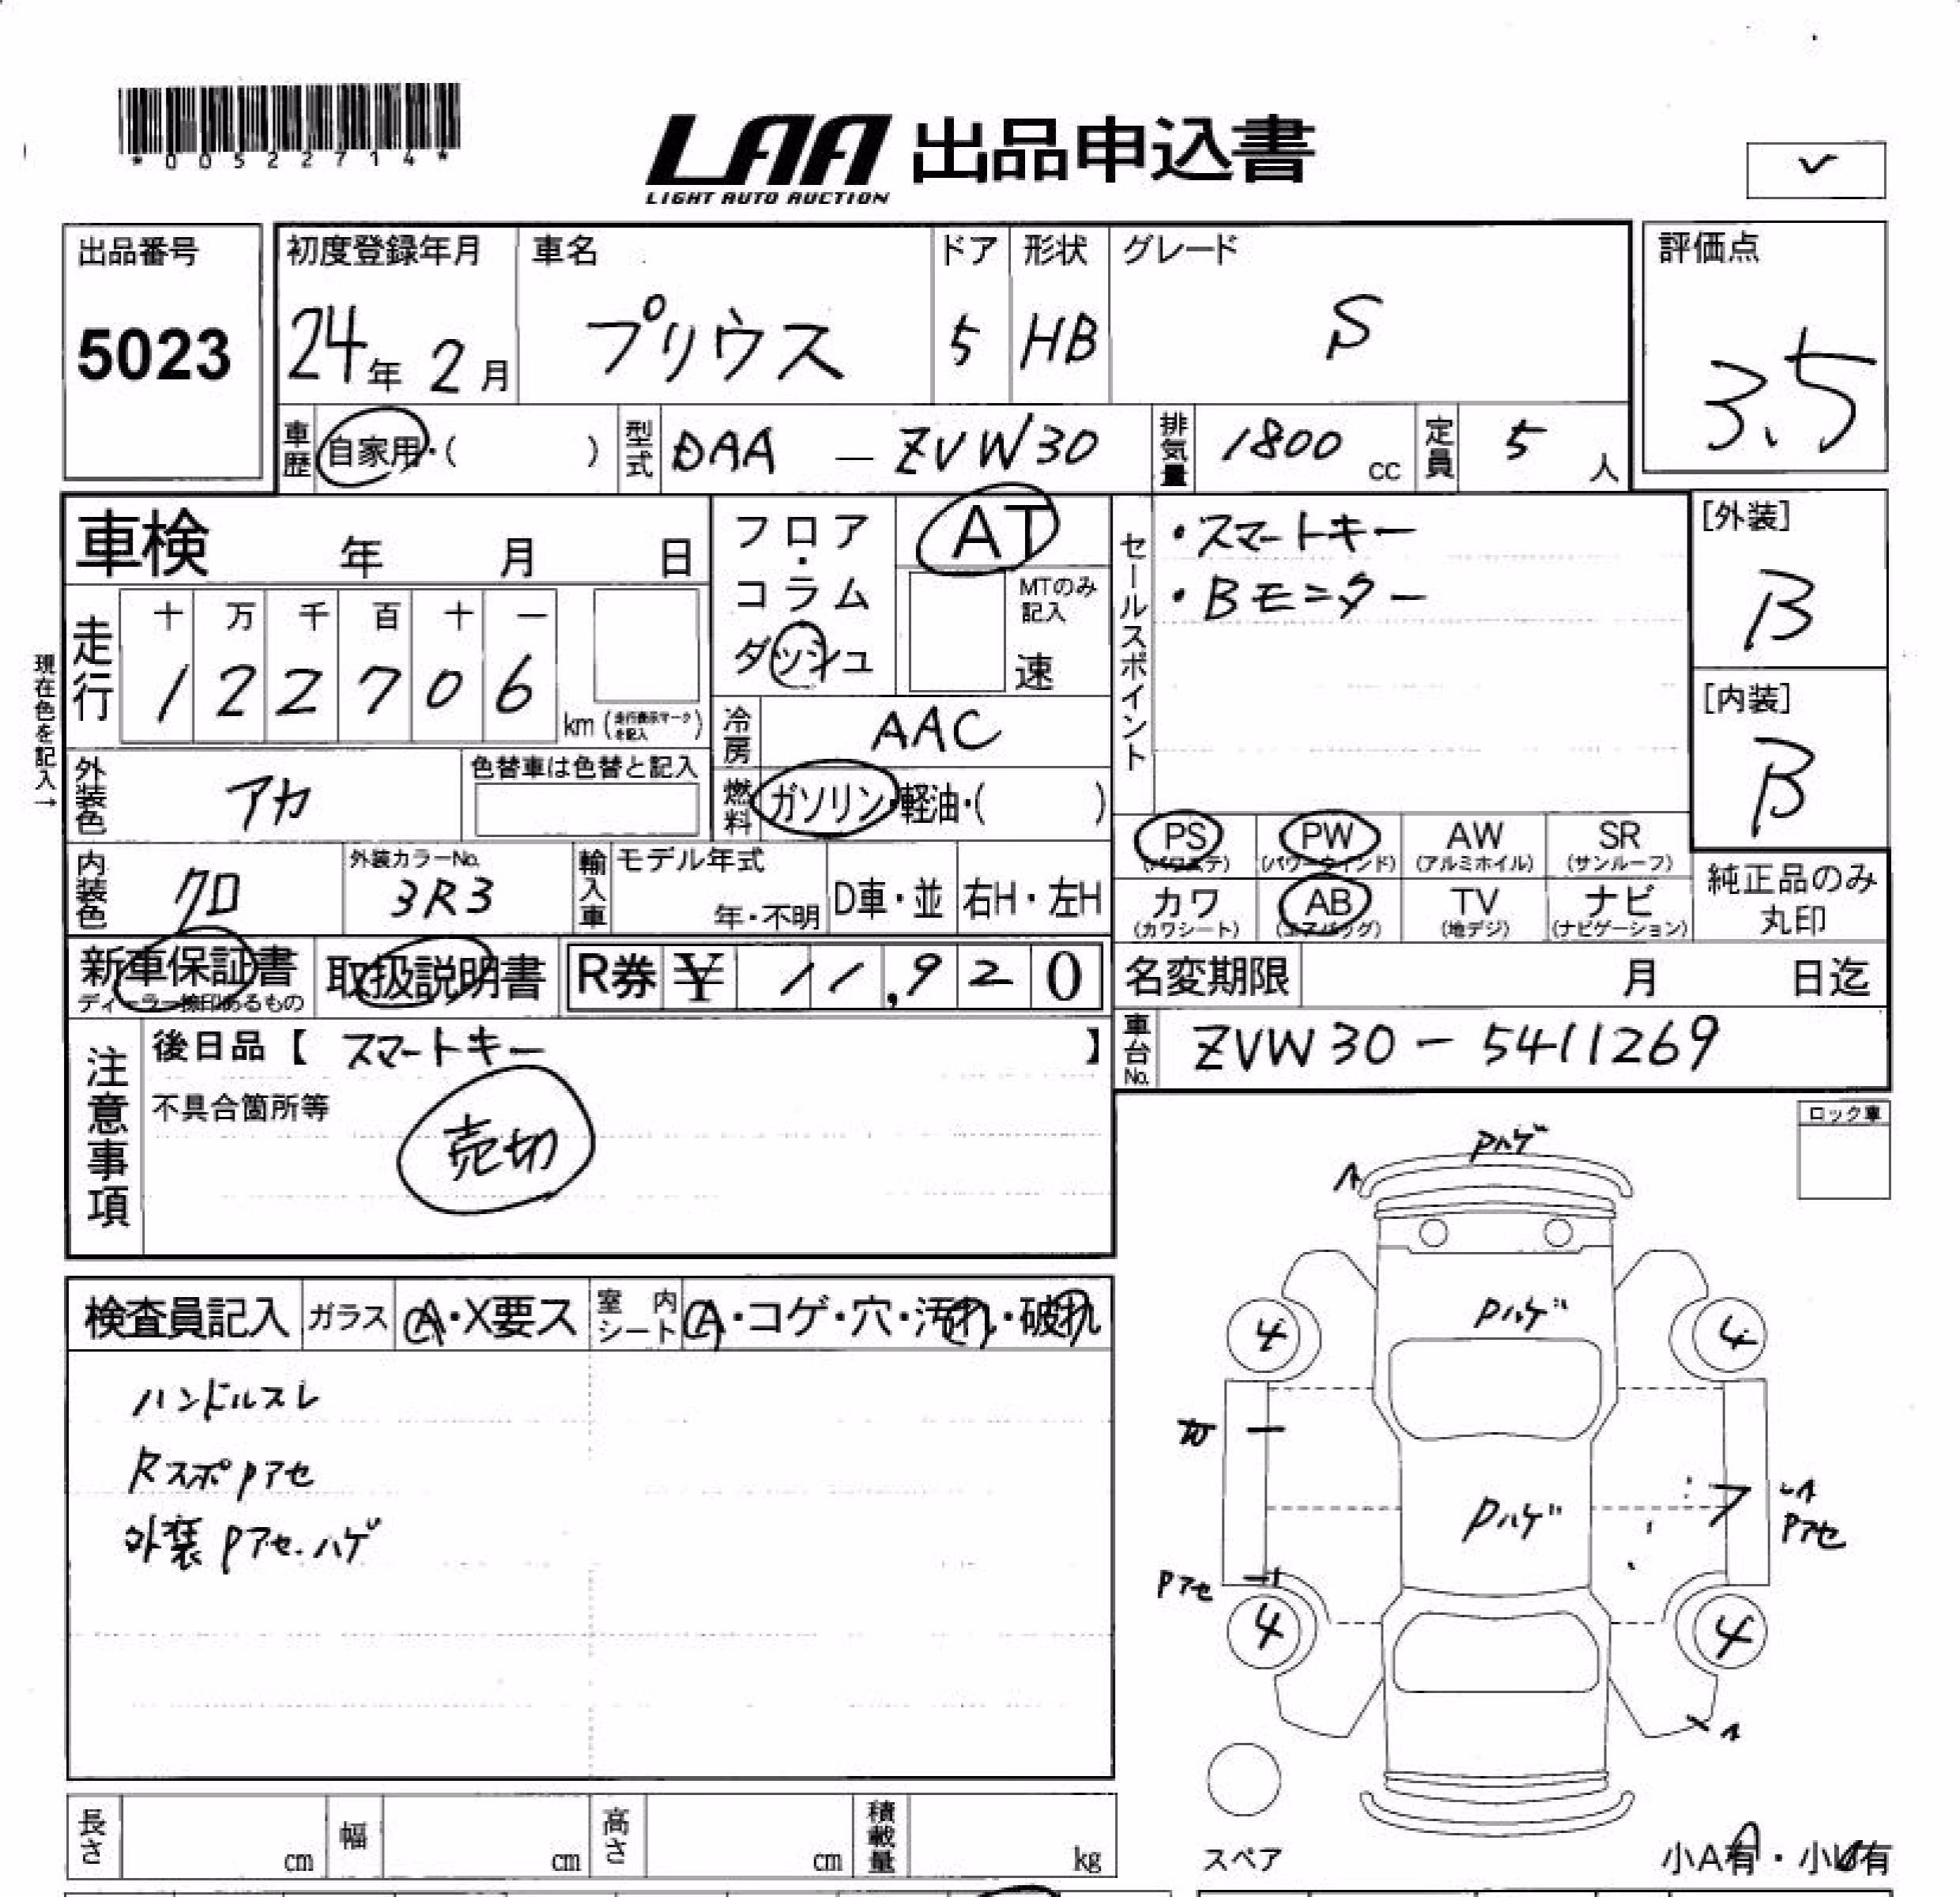 *00522714*
LAA 出品申込書
LIGHT AUTO AUCTION
✓
出品番号
5023
初度登録年月
24年 2月
車名
プリウス
ドア
5
形状
HB
グレード
S
評価点
3.5
車歴 自家用・( )
型式 DAA - ZVW30
排気量 1800 cc
定員 5 人
車検 年 月 日
フロア・コラム
ダッシュ
AT
MTのみ記入
速
セールスポイント
・スマートキー
・Bモニター
[外装]
B
[内装]
B
現在色を記入→
走行
十 万 千 百 十 一
1 2 2 7 0 6
km (走行表示マークを記入)
冷房 AAC
燃料 ガソリン・軽油・( )
外装色 アカ
色替車は色替と記入
PS (パワステ)
PW (パワーウィンド)
AW (アルミホイル)
SR (サンルーフ)
カワ (カワシート)
AB (エアバッグ)
TV (地デジ)
ナビ (ナビゲーション)
純正品のみ
丸印
内装色 クロ
外装カラーNo.
3R3
輸入車
モデル年式
年・不明
D車・並
右H・左H
新車保証書
ディーラー捺印あるもの
取扱説明書
R券 ¥ 11,920
名変期限 月 日迄
車台No. ZVW30-5411269
注意事項
後日品【 スマートキー 】
不具合箇所等
売切
ロック車
検査員記入
ガラス A・X要ス
室内シート A・コゲ・穴・汚れ・破れ
ハンドルスレ
Rスポpアセ
外装pアセ.ハゲ
pハゲ
pハゲ
4 4
pハゲ
pアセ
pアセ
4 4
スペア
小A有・小U有
長さ cm
幅 cm
高さ cm
積載量 kg